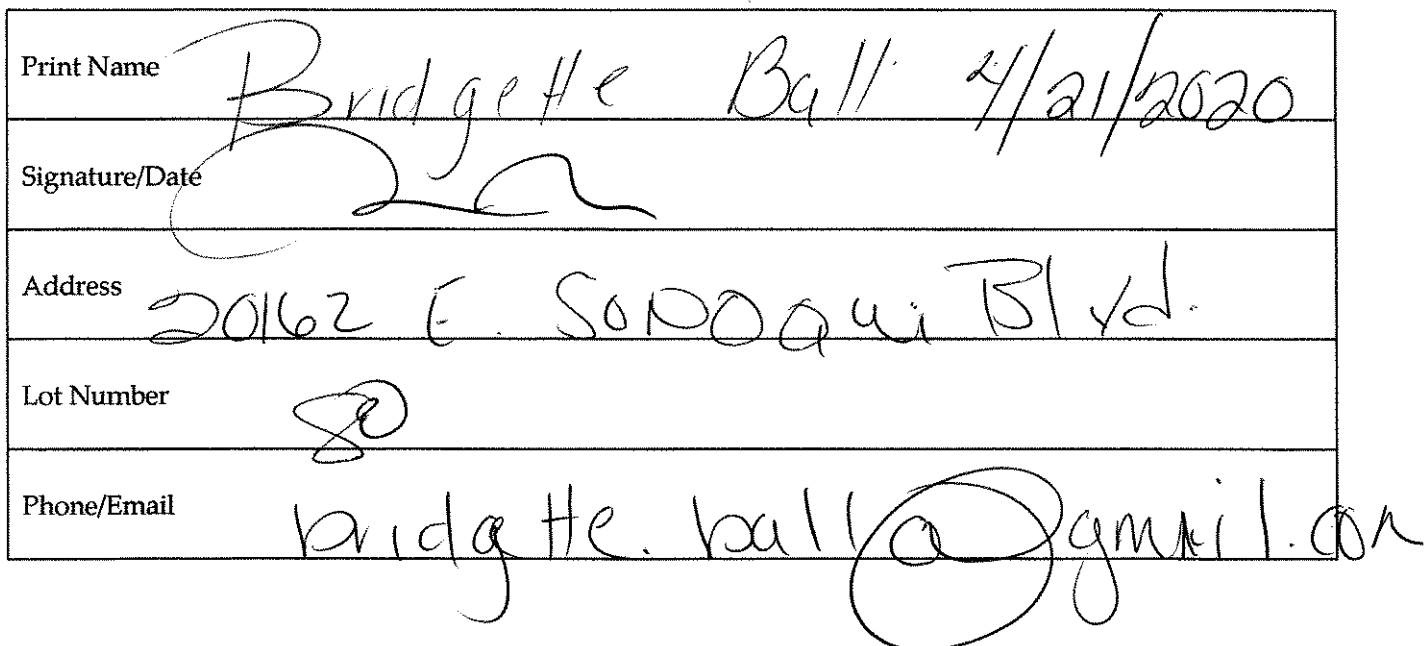 Print Name Bridgette Ball 4/21/2020
Signature/Date
Address 20162 E. Sonoqui Blvd.
Lot Number 80
Phone/Email bridgette.ball@gmail.com